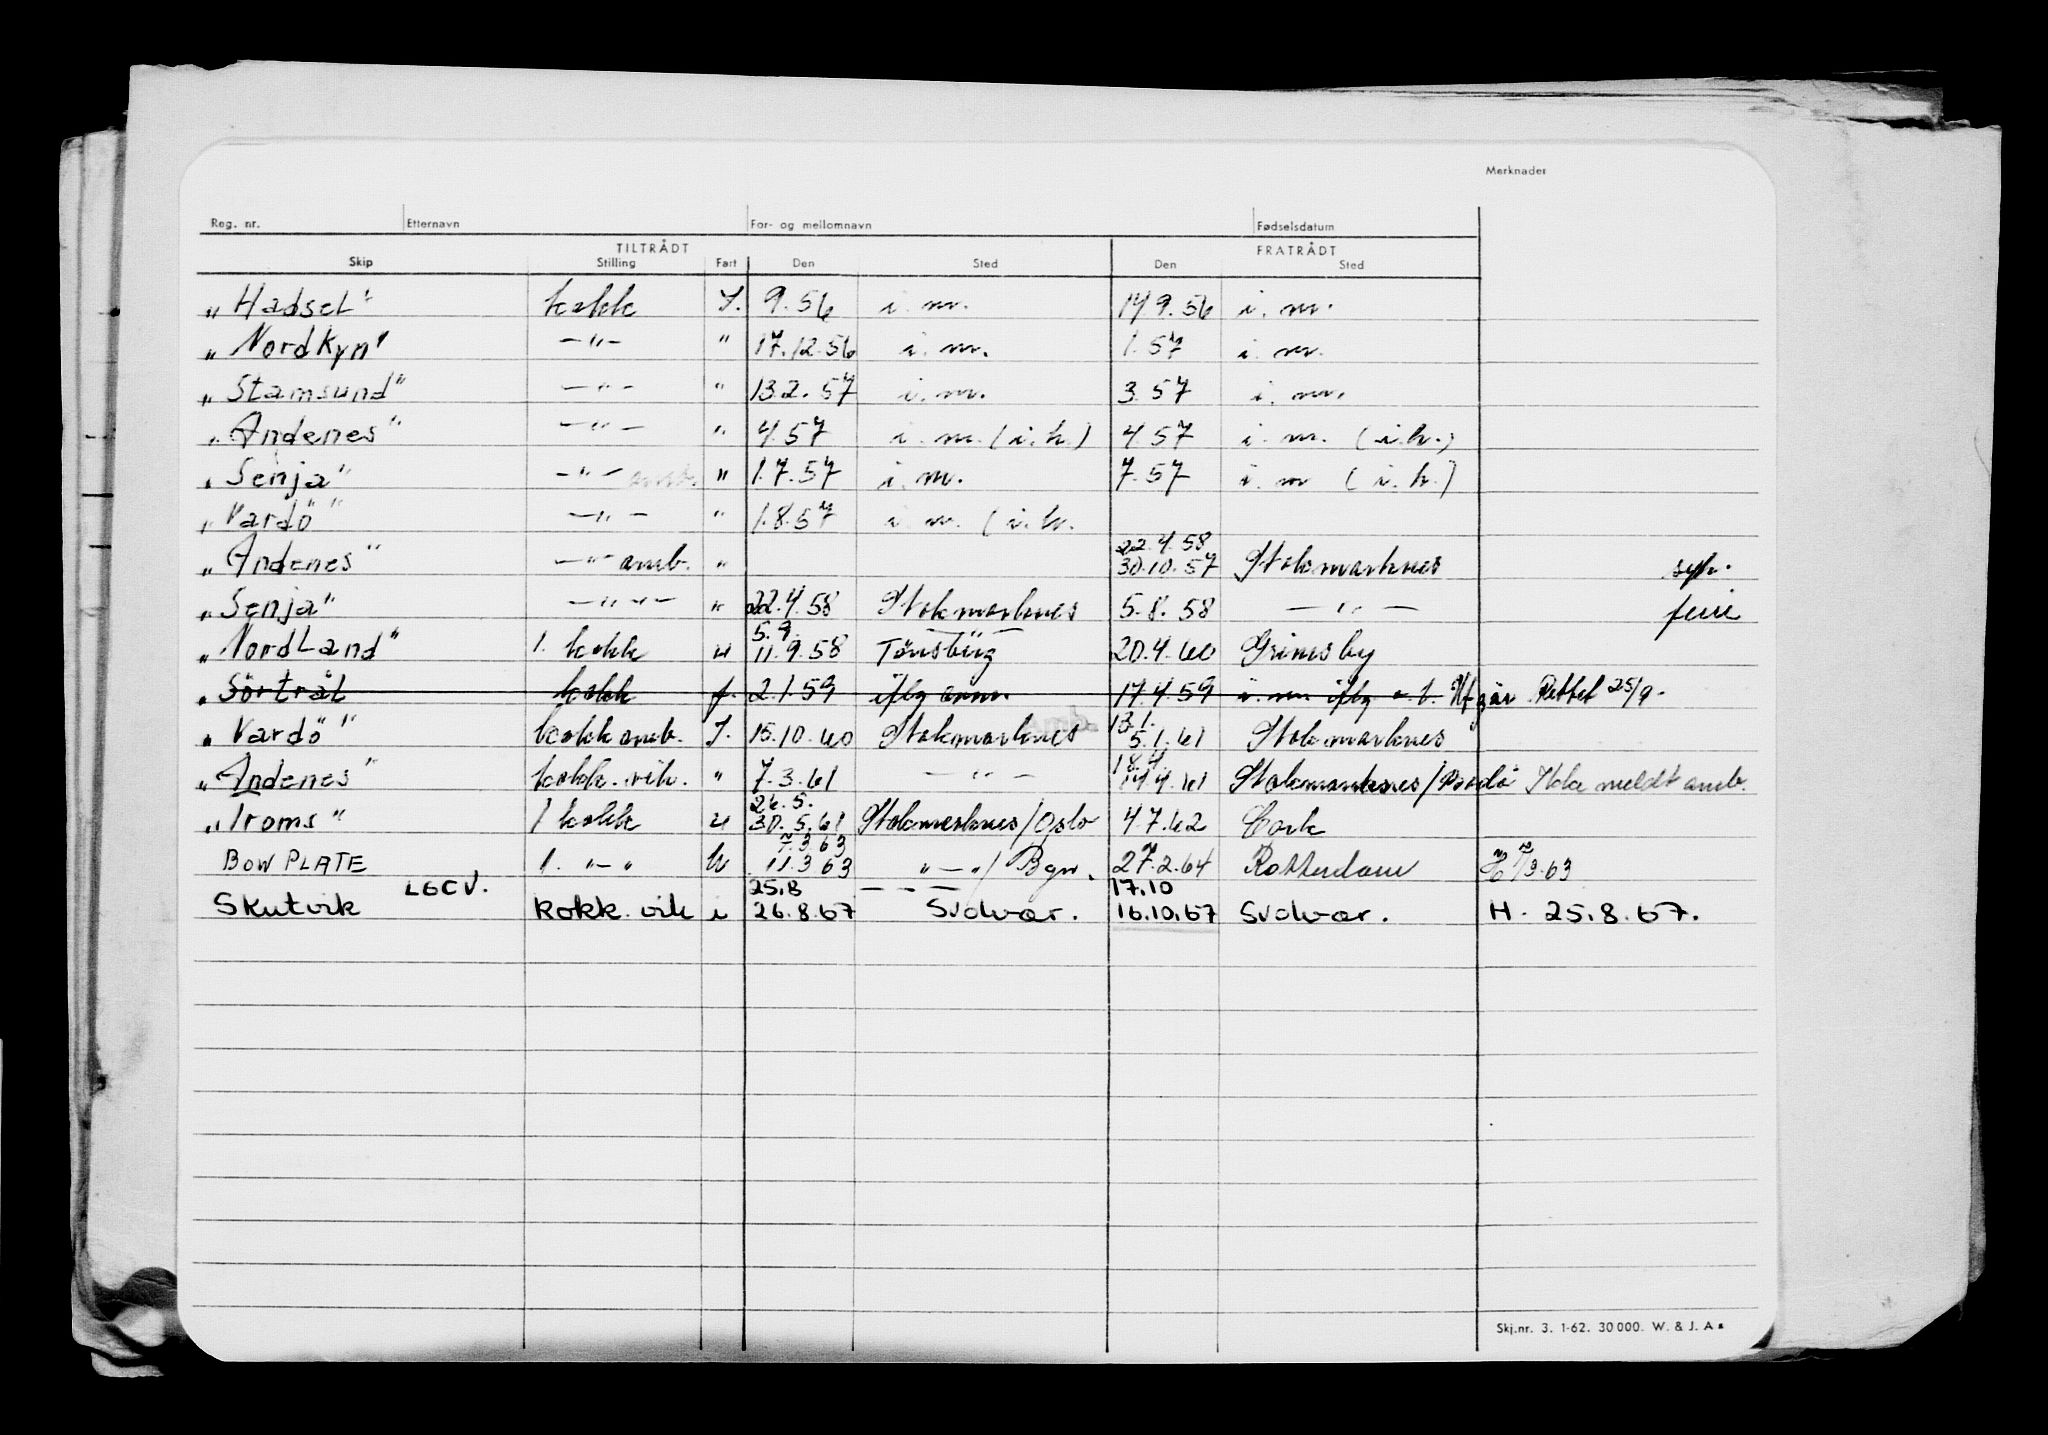 Merknader
Reg. nr. Etternavn For- og mellomnavn Fødselsdatum
TILTRÅDT FRATRÅDT
Skip Stilling Fart Den Sted Den Sted
"Hadsel" kokk I. 9.56 i. m. 14 9.56 i. m.
"Nordkyn" —"— " 17.12.56 i. m. 1.57 i. m.
"Stamsund" —"— " 13.2.57 i. m. 3.57 i. m.
"Andenes" —"— " 4.57 i. m. (i.h.) 4.57 i. m. (i.h.)
"Senja" —"— amb. " 1.7.57 i. m. 7.57 i. m (i.h.)
"Vardö" —"— " 1.8.57 i. m. (i.h.
22.4.58
"Andenes" —"— amb. " 30.10.57 Stokmarknes syk.
"Senja" —"—"— " 22.4.58 Stokmarknes 5.8.58 —"— ferie
5.9.
"NordLand" 1. kokk u 11.9.58 Tønsberg 20.4.60 Grimsby
"Sörtrål kokk f. 2.1.59 iflg anm. 17.4.59 i. m. iflg Utgår Rettet 25/9.
13.1.
"Vardö" kokk amb. I. 15.10.60 Stokmarknes amb. 5.1.61 Stokmarknes
18.4.
"Andenes" kokk. vik. " 7.3.61 —"— 14.4.61 Stokmarknes/Bodö Ikke meldt amb.
26.5.
"Troms" 1 kokk u 30.5.61 Stokmarknes/Oslo 4.7.62 Cork
7.3 63
BOW PLATE 1. "—" u 11.3 63 "—"/Bgn. 27.2.64 Rotterdam H 7/3.63
LGCV. 25.8 — — — 17.10
Skutvik kokk. vik i 26.8.67 Svolvær. 16.10.67 Svolvær. H. 25.8.67.
Skj.nr. 3. 1-62. 30 000. W. & J. A.s